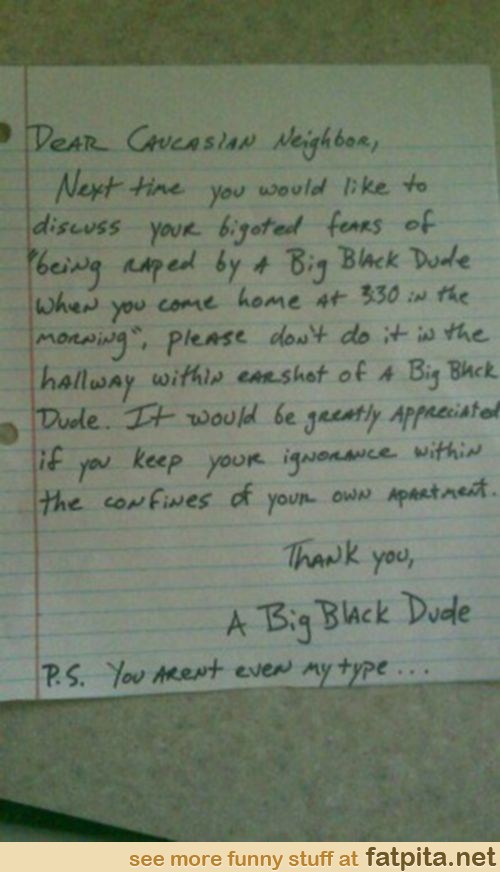 Dear Caucasian Neighbor,
Next time you would like to
discuss your bigoted fears of
"being raped by A Big Black Dude
when you come home at 3:30 in the
morning", please don't do it in the
hallway within earshot of A Big Black
Dude. It would be greatly appreciated
if you keep your ignorance within
the confines of your own apartment.
Thank you,
A Big Black Dude
P.S. You arent even my type...
see more funny stuff at fatpita.net